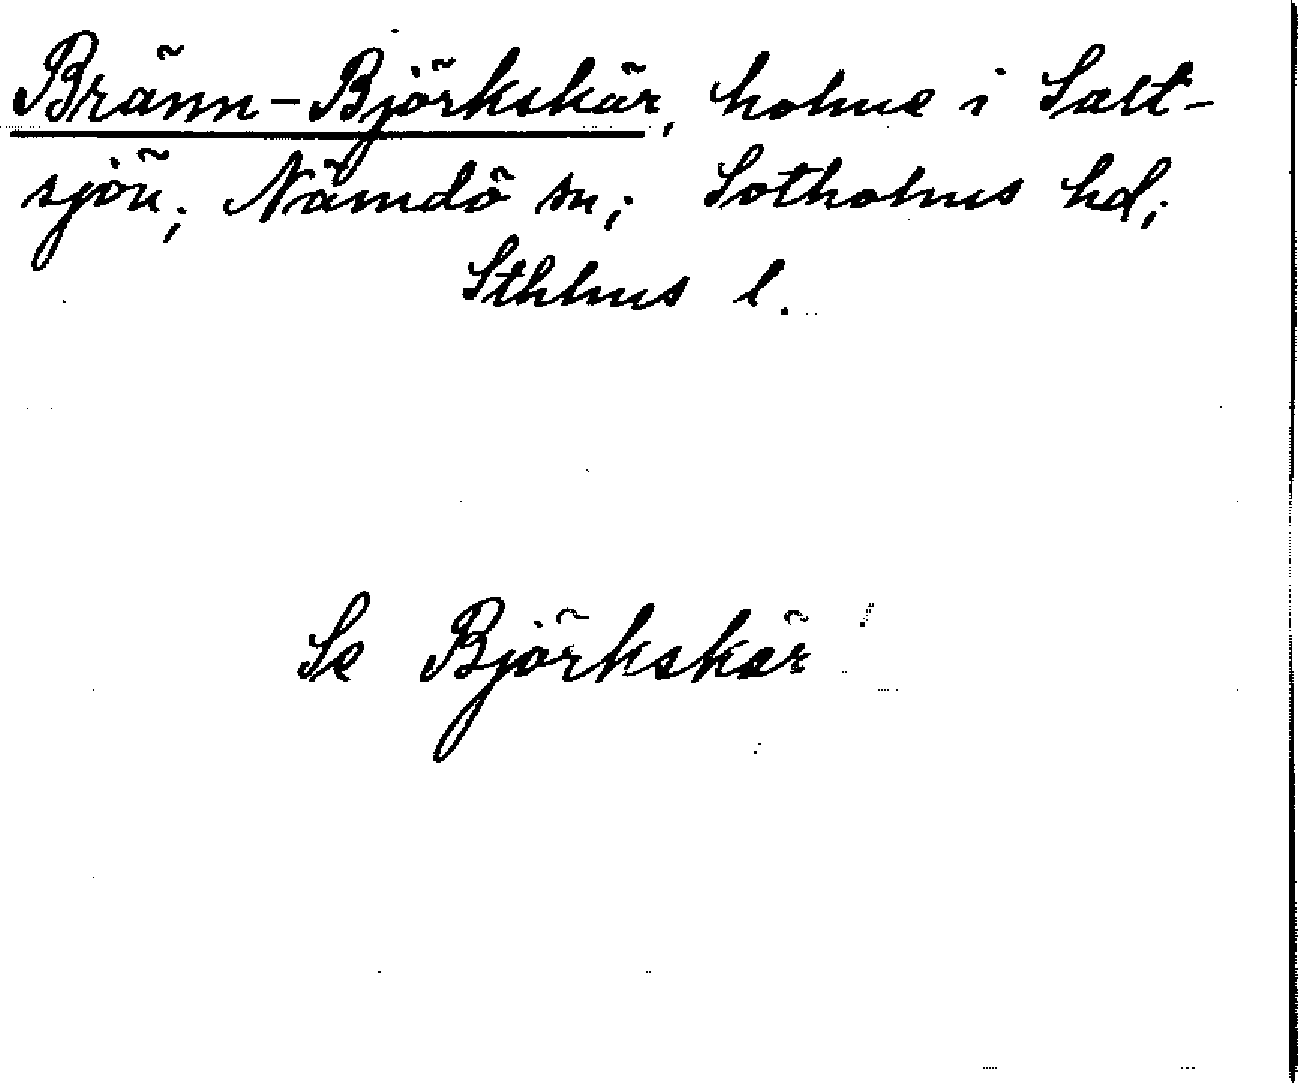 Bränn-Björkskär, holme i Salt-
sjön; Nämdö sn; Sotholms hd;
Sthlms l.
Se Björkskär